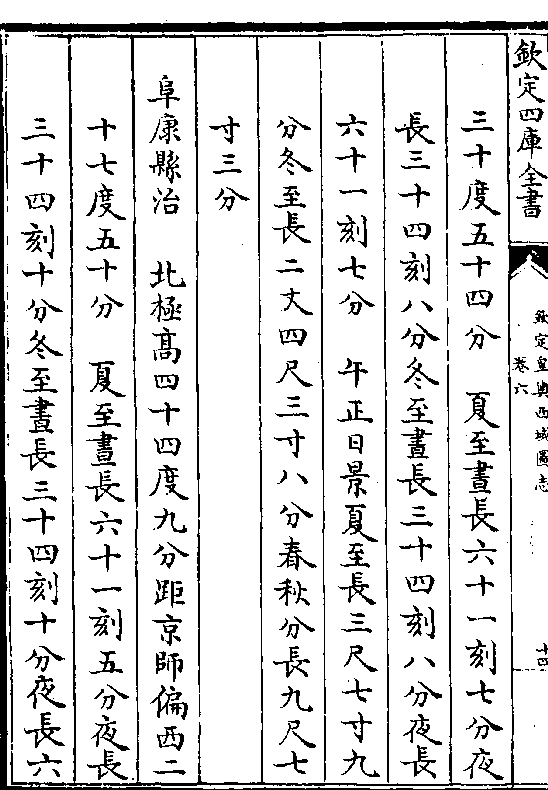 欽定四庫全書
欽定皇輿西域圖志
卷六
十四
三十度五十四分　夏至晝長六十一刻七分夜
長三十四刻八分冬至晝長三十四刻八分夜長
六十一刻七分　午正日景夏至長三尺七寸九
分冬至長二丈四尺三寸八分春秋分長九尺七
寸三分
阜康縣治　北極高四十四度九分距京師偏西二
十七度五十分　夏至晝長六十一刻五分夜長
三十四刻十分冬至晝長三十四刻十分夜長六